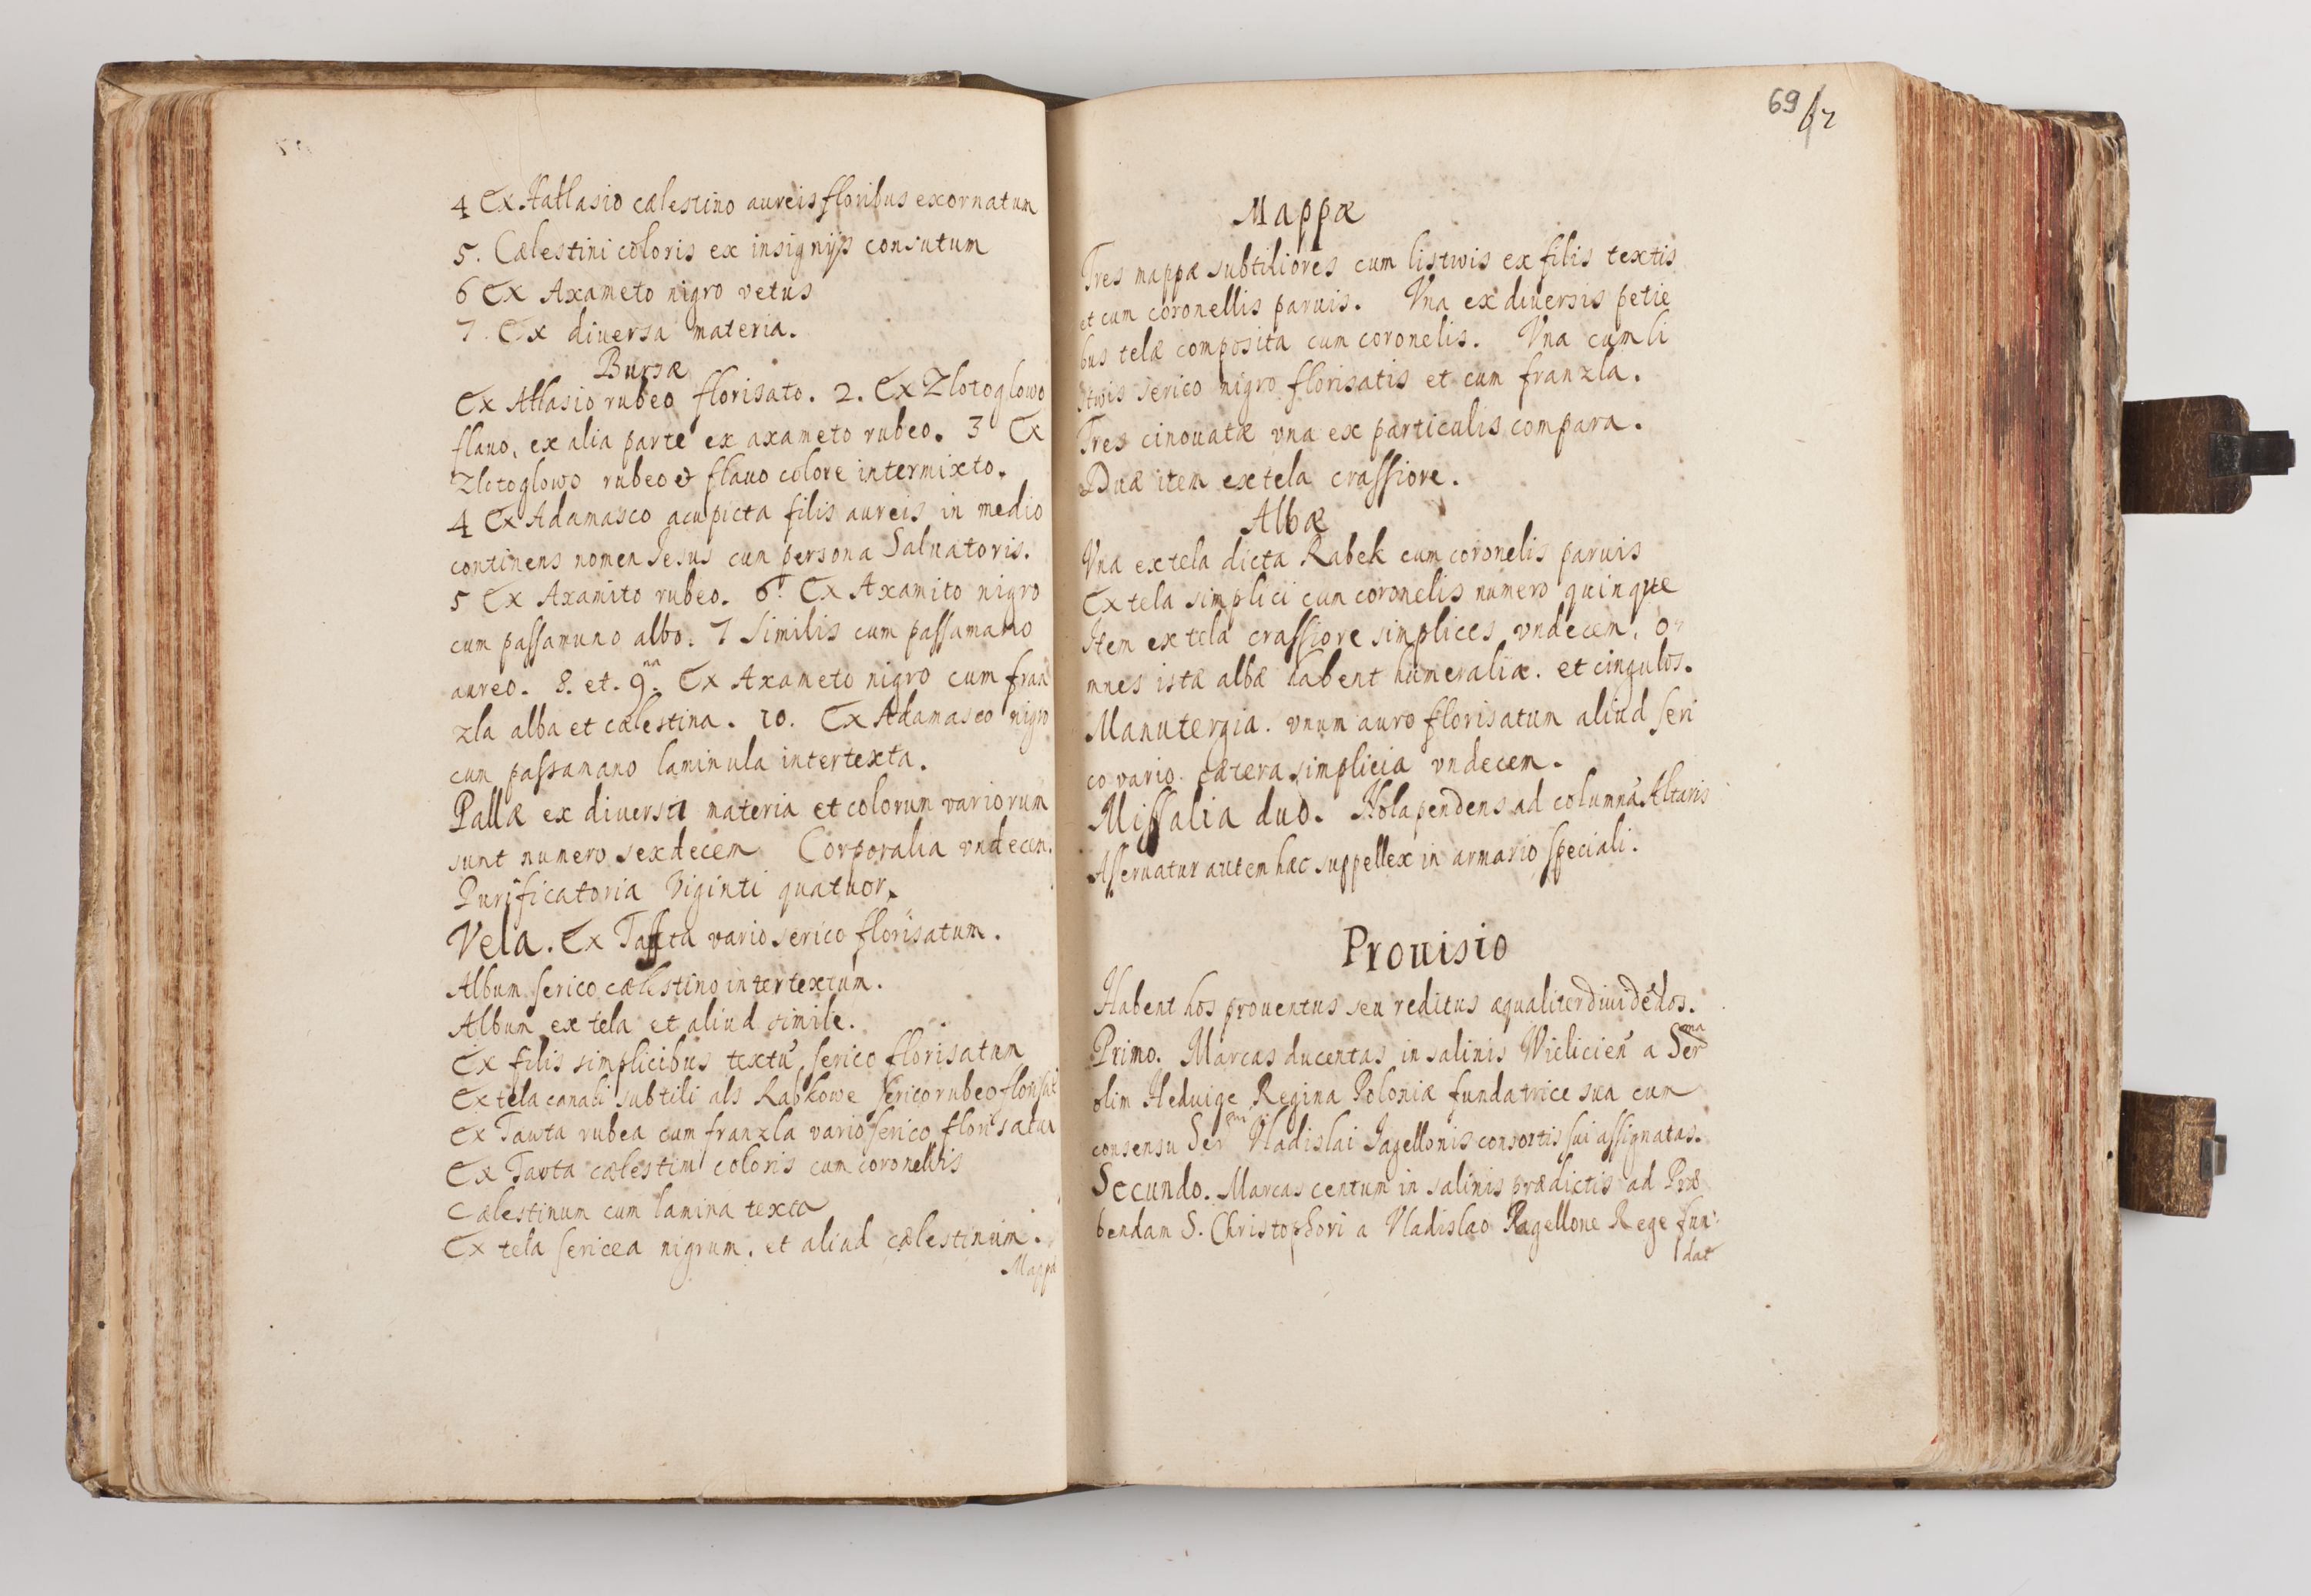 4 Ex Hatlasio cælestino aureis floribus exornatum
5. Cælestini coloris ex insignijs consutum
6 Ex Axameto nigro vetus
7. Ex diuersa materia.
Bursæ
Ex Atlasio rubeo florisato. 2. Ex Zlotoglowo
flauo, ex alia parte ex axameto rubeo. 3 Ex
Zlotoglowo rubeo et flauo colore intermixto.
4 Ex Adamasco acupicta filis aureis in medio
continens nomen Jesus cun persona Saluatoris.
5 Ex Axamito rubeo. 6. Ex Axamito nigro
cum passamano albo. 7 Similis cum passamano
aureo. 8. et. 9.na Ex Axameto nigro cum fran
zla alba et cælestina. 10. Ex Adamasco nigro
cun passamano laminula intertexta.
Pallæ ex diuersa materia et colorum variorum
sunt numero sexdecem Corporalia vndecem.
Purificatoria Viginti quatuor.
Vela. Ex Taffta vario serico florisatum.
Album serico cælestino intertextum.
Album ex tela et aliud simile.
Ex filis simplicibus textũ serico florisatum
Ex tela canabi subtili als Rabkowe serico rubeo florisat
Ex Tauta rubea cum franzla vario serico florisatum
Ex Tauta cælestini coloris cum coronellis
Cælestinum cum lamina texta
Ex tela sericea nigrum. et aliud cælestinum.
Mappæ
69
Mappæ
Tres mappæ subtiliores cum listwis ex filis textis
et cum coronellis paruis. Vna ex diuersis petie
bus telæ composita cum coronelis. Vna cum li
stwis serico nigro florisatis et cum franzla.
Tres cinouatæ vna ex particulis compara.
Duæ item ex tela crassiore.
Albæ
Vna ex tela dicta Rabek cum coronelis paruis
Ex tela simplici cun coronelis numero quinque
Item ex tela crassiore simplices vndecem. o
mnes istæ albæ habent humeraliæ. et cingulos.
Manutergia. vnum auro florisatum aliud seri
co vario. cætera simplicia vndecem.
Missalia duo. Nola pendens ad columnã Altaris
Aseruatur autem hæc suppellex in armario speciali.
Prouisio
Habent hos prouentus seu reditus æqualiter diuidẽdos.
Primo. Marcas ducentas in salinis Wielicień a Serma
olim Heduige Regina Poloniæ fundatrice sua cum
consensu Sermi Vladislai Jagellonis consortis sui assignatas.
Secundo. Marcas centum in salinis prædictis ad Præ
bendam S. Christophori a Vladislao Jagellone Rege fun:
dat